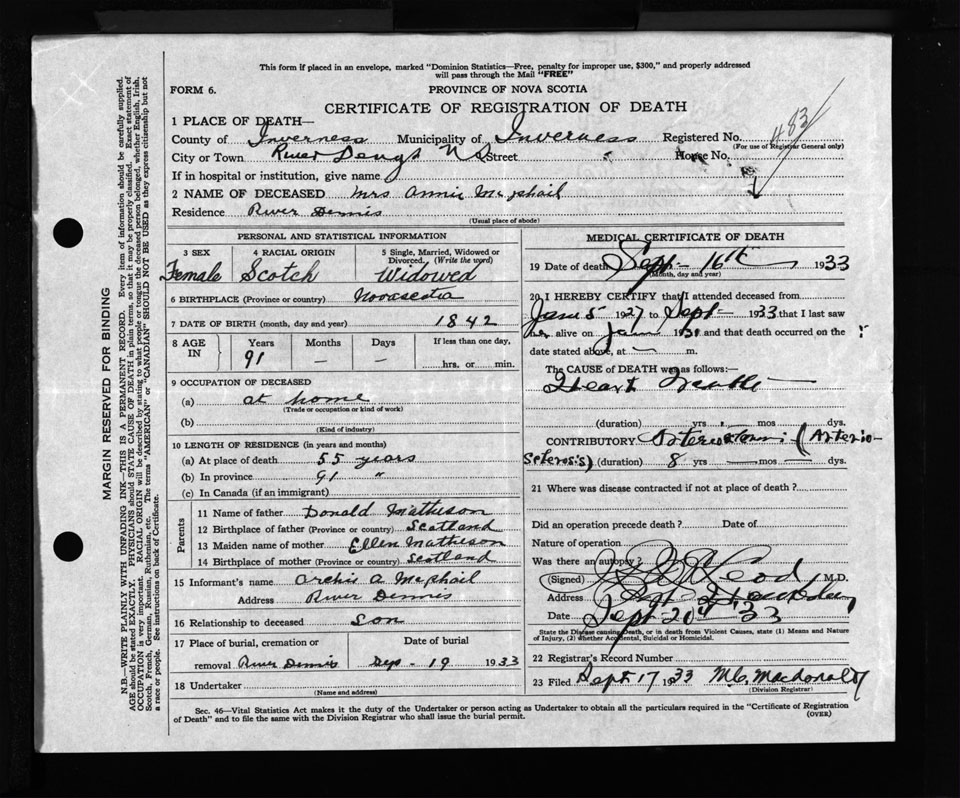 This form if placed in an envelope, marked "Dominion Statistics—Free, penalty for improper use, $300," and properly addressed
will pass through the Mail "FREE"
FORM 6.
PROVINCE OF NOVA SCOTIA
CERTIFICATE OF REGISTRATION OF DEATH
483
1 PLACE OF DEATH—
County of Inverness Municipality of Inverness Registered No.
(For use of Registrar General only)
City or Town River Denys N S Street House No.
If in hospital or institution, give name
2 NAME OF DECEASED Mrs Annie McPhail
Residence River Dennis
(Usual place of abode)
PERSONAL AND STATISTICAL INFORMATION
3 SEX 4 RACIAL ORIGIN 5 Single, Married, Widowed or
Divorced. (Write the word)
Female Scotch Widowed
6 BIRTHPLACE (Province or country) Novascotia
7 DATE OF BIRTH (month, day and year) 1842
8 AGE IN Years Months Days If less than one day,
91 — — hrs. or min.
9 OCCUPATION OF DECEASED
(a) at home
(Trade or occupation or kind of work)
(b)
(Kind of industry)
10 LENGTH OF RESIDENCE (in years and months)
(a) At place of death 55 years
(b) In province 91 "
(c) In Canada (if an immigrant)
Parents
11 Name of father Donald Matheson
12 Birthplace of father (Province or country) Scotland
13 Maiden name of mother Ellen Matheson
14 Birthplace of mother (Province or country) Scotland
15 Informant's name Archie A McPhail
Address River Dennis
16 Relationship to deceased son
17 Place of burial, cremation or Date of burial
removal River Dennis Sep - 19 1933
18 Undertaker
(Name and address)
MEDICAL CERTIFICATE OF DEATH
19 Date of death Sept - 16th 1933
(Month, day and year)
20 I HEREBY CERTIFY that I attended deceased from
Jan 5 1927 to Sept — 1933 that I last saw
her alive on Jan 193 and that death occurred on the
date stated above, at — m.
The CAUSE OF DEATH was as follows:—
Heart
(duration) yrs mos dys.
CONTRIBUTORY (Arterio-
Sclerosis) (duration) 8 yrs — mos — dys.
21 Where was disease contracted if not at place of death?
Did an operation precede death? Date of
Nature of operation
Was there an autopsy?
(Signed) M.D.
Address
Date Sept 20th '33
State the Disease causing Death, or in death from Violent Causes, state (1) Means and Nature
of Injury, (2) whether Accidental, Suicidal or Homicidal.
22 Registrar's Record Number
23 Filed Sept 17 1933 M.C. Macdonald
(Division Registrar)
Sec. 46—Vital Statistics Act makes it the duty of the Undertaker or person acting as Undertaker to obtain all the particulars required in the "Certificate of Registration
of Death" and to file the same with the Division Registrar who shall issue the burial permit.
(OVER)
MARGIN RESERVED FOR BINDING
N.B.—WRITE PLAINLY WITH UNFADING INK—THIS IS A PERMANENT RECORD. Every item of information should be carefully supplied.
AGE should be stated EXACTLY. PHYSICIANS should STATE CAUSE OF DEATH in plain terms, so that it may be properly classified. Exact statement of
OCCUPATION is very important. RACIAL ORIGIN will be described by stating to what people or tongue the deceased person belonged, whether English, Irish,
Scotch, French, German, Russian, Ruthenian, etc. The terms "AMERICAN" or "CANADIAN" SHOULD NOT BE USED as they express citizenship but not
a race or people. See instructions on back of Certificate.